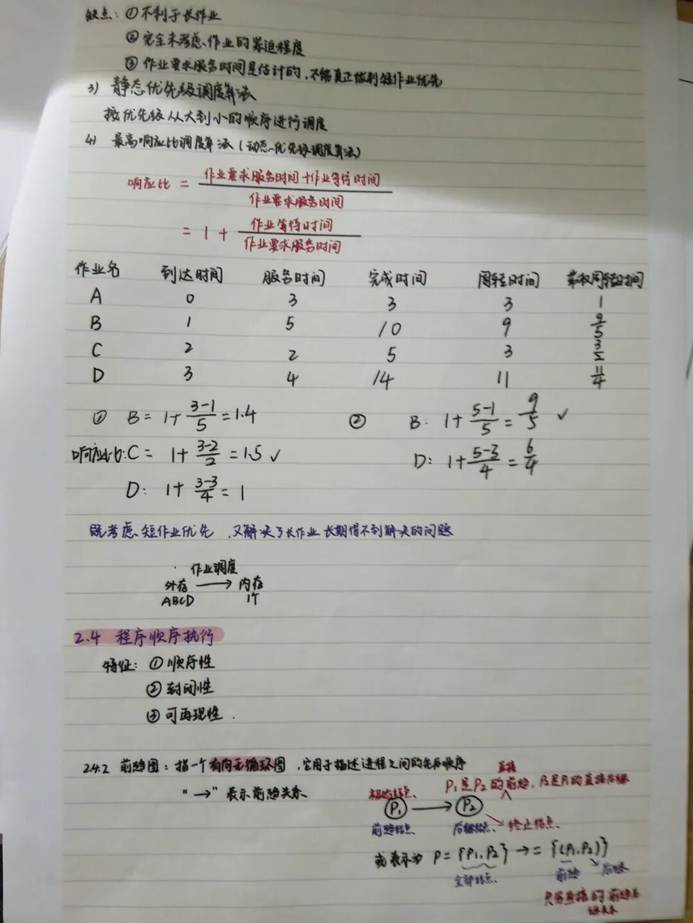 缺点：①不利于长作业
②完全未考虑作业的紧迫程度
③作业要求服务时间是估计的，不能真正做到短作业优先
3) 静态优先级调度算法
按优先级从大到小的顺序进行调度
4) 最高响应比调度算法（动态优先级调度算法）
响应比 = 作业要求服务时间+作业等待时间 / 作业要求服务时间
= 1 + 作业等待时间 / 作业要求服务时间
作业名 到达时间 服务时间 完成时间 周转时间 带权周转时间
A 0 3 3 3 1
B 1 5 10 9 9/5
C 2 2 5 3 3/2
D 3 4 14 11 11/4
① B = 1+ 3-1/5 = 1.4 ② B: 1+ 5-1/5 = 9/5 ✓
响应比: C = 1+ 3-2/2 = 1.5 ✓ D: 1+ 5-3/4 = 6/4
D: 1+ 3-3/4 = 1
既考虑短作业优先，又解决了长作业长期得不到解决的问题
作业调度
外存 → 内存
ABCD 1个
2.4 程序顺序执行
特征：①顺序性
②封闭性
③可再现性.
2.4.2 前趋图：指一个有向无循环图，它用于描述进程之间的先后顺序
"→" 表示前趋关系
直接
P1是P2的前趋，P2是P1的直接后继
P1 → P2
前趋结点 后继结点 终止结点
或表示为 P={P1,P2} →={(P1,P2)}
全部结点 前趋 后继